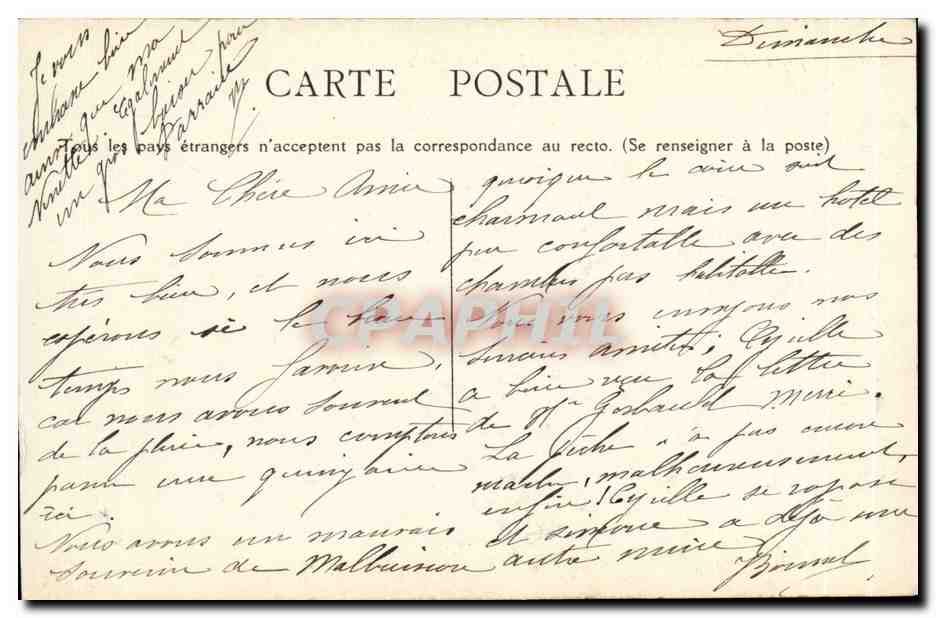 Dimanche
CARTE POSTALE
Tous les pays étrangers n'acceptent pas la correspondance au recto. (Se renseigner à la poste)
Ma Chère Amie
Nous sommes ici
très bien, et nous
espérons si le beau
temps nous favorise,
car nous avons souvent
de la pluie, nous comptons
passer une quinzaine
ici.
Nous avons un mauvais
souvenir de Malbuisson
quoique le coin soit
charmant mais un hotel
peu confortable avec des
chambres pas habitable.
Nous vous envoyons nos
amitiés, Cyrille
a bien reçu la lettre
de Mr merci.
La pêche n'a pas encore
malheureusement,
enfin! Cyrille se repose
et Simone a déjà une
autre mine
Je vous
embrasse bien
ainsi que ma
également
un gros baiser pour
CPAPHIL